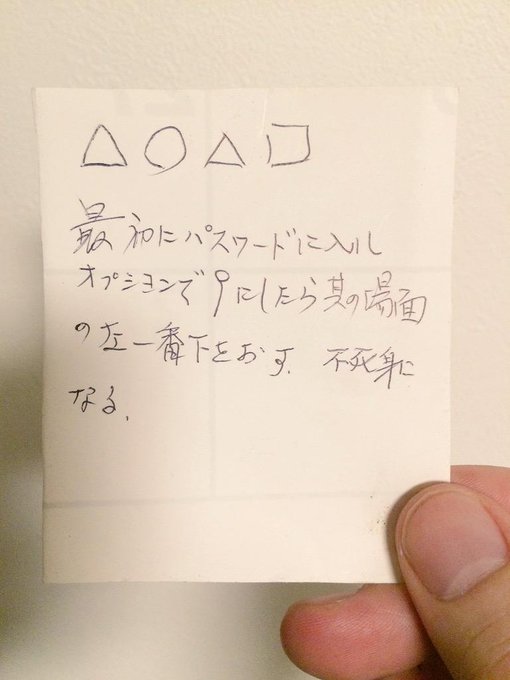 △○△□
最初にパスワードに入れ
オプションで9にしたら其の場面
の左一番下をおす. 不死身に
なる.